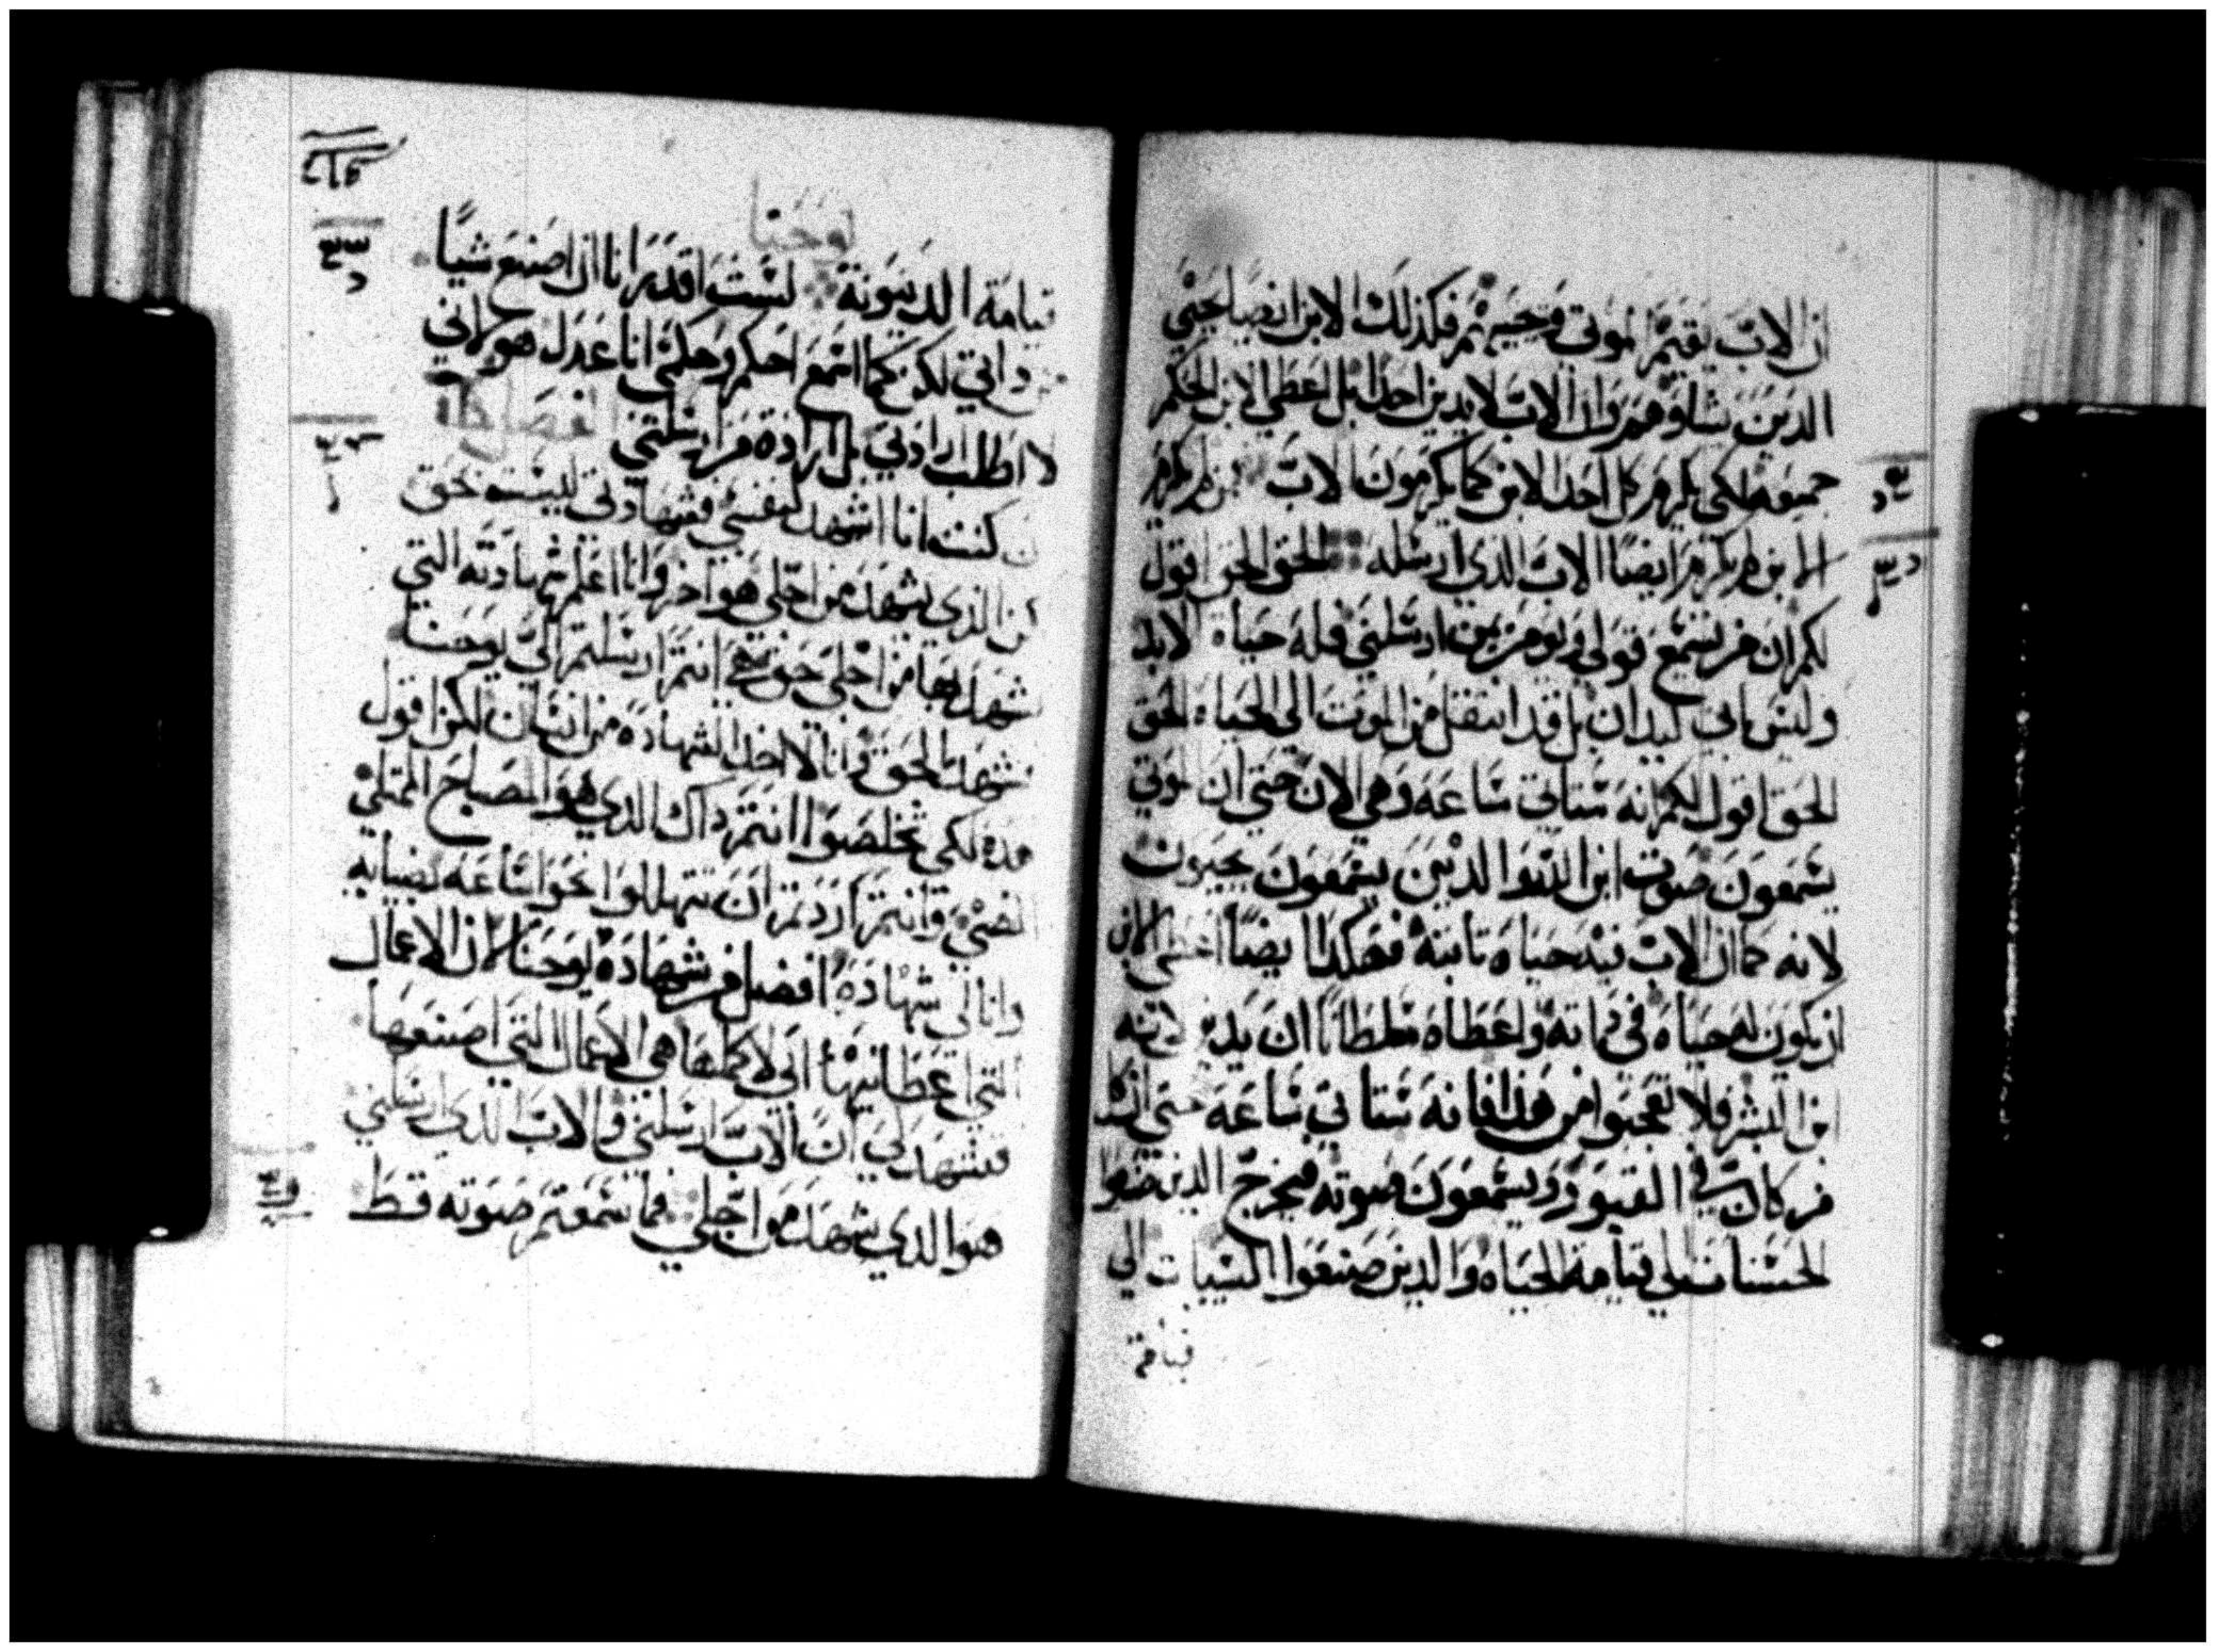 ان الاب يقيم الموتى ويحييهم فكذلك الابن ايضا يحيي
الدين يشاوهم وان الاب لا يدين احدا بل اعطى الابن الحكم
جميعه لكي يكرم كل احد الابن كما يكرمون الاب فمن لم يكرم
الابن لم يكرم ايضا الاب الذي ارسله الحق الحق اقول
لكم ان من يسمع قولي ويومن بمن ارسلني فله حياة الابد
وليس ياتي ليدان بل قد انتقل من الموت الى الحياة الحق
الحق اقول لكم انه ستاتي ساعة وهي الان حتى ان الموتى
يسمعون صوت ابن الله والدين يسمعون يحيون
لانه كما ان الاب فيه حياة تابتة فهكدا ايضا اعطى الابن
ان يكون له حياة في داته واعطاه سلطانا ان يدين لانه
ابن البشر فلا تعجبوا من هذا فانه ستاتي ساعة حتى ان كل
من كان في القبور يسمعون صوته فيخرج الدين صنعوا
الحسنات الى قيامة الحياة والدين صنعوا السييات الى
قيامة
يوحنا
قيامة الدينونة لست اقدر انا ان اصنع شيا
من داتي لكن كما اسمع احكم وحكمي انا عدل هو لاني
لا اطلب ارادتي بل ارادة من ارسلني الفصل
ان كنت انا اشهد لنفسي فشهادتي ليست حق
لكن الذي يشهد من اجلي هو اخر وانا اعلم شهادته التي
شهد بها من اجلي حق هي انتم ارسلتم الى يوحنا
فشهد بالحق وانا لا اخد الشهادة من انسان لكن اقول
هده لكي تخلصوا انتم داك الدي هو المصباح الممتلي
المضي وانتم اردتم ان تتهللوا نحو ساعة بضيايه
وانا لي شهادة افضل من شهادة يوحنا لان الاعمال
التي اعطانيها ابي لاكملها هي الاعمال التي اصنعها
فتشهد لي ان الاب ارسلني والاب الدي ارسلني
هو الدي يشهد من اجلي فما سمعتم صوته قط